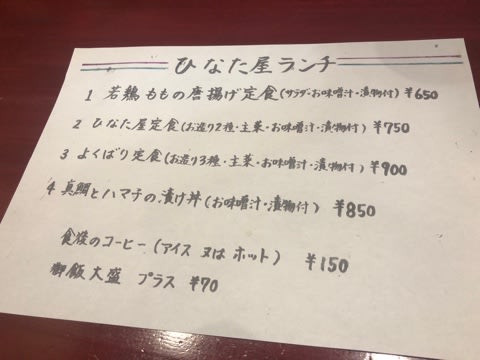 ひなた屋ランチ
1 若鶏ももの唐揚げ定食(サラダ・お味噌汁・漬物付) ¥650
2 ひなた屋定食(お造り2種・主菜・お味噌汁・漬物付) ¥750
3 よくばり定食(お造り3種・主菜・お味噌汁・漬物付) ¥900
4 真鯛とハマチの漬け丼(お味噌汁・漬物付) ¥850
食後のコーヒー(アイス 又は ホット) ¥150
御飯大盛 プラス ¥70